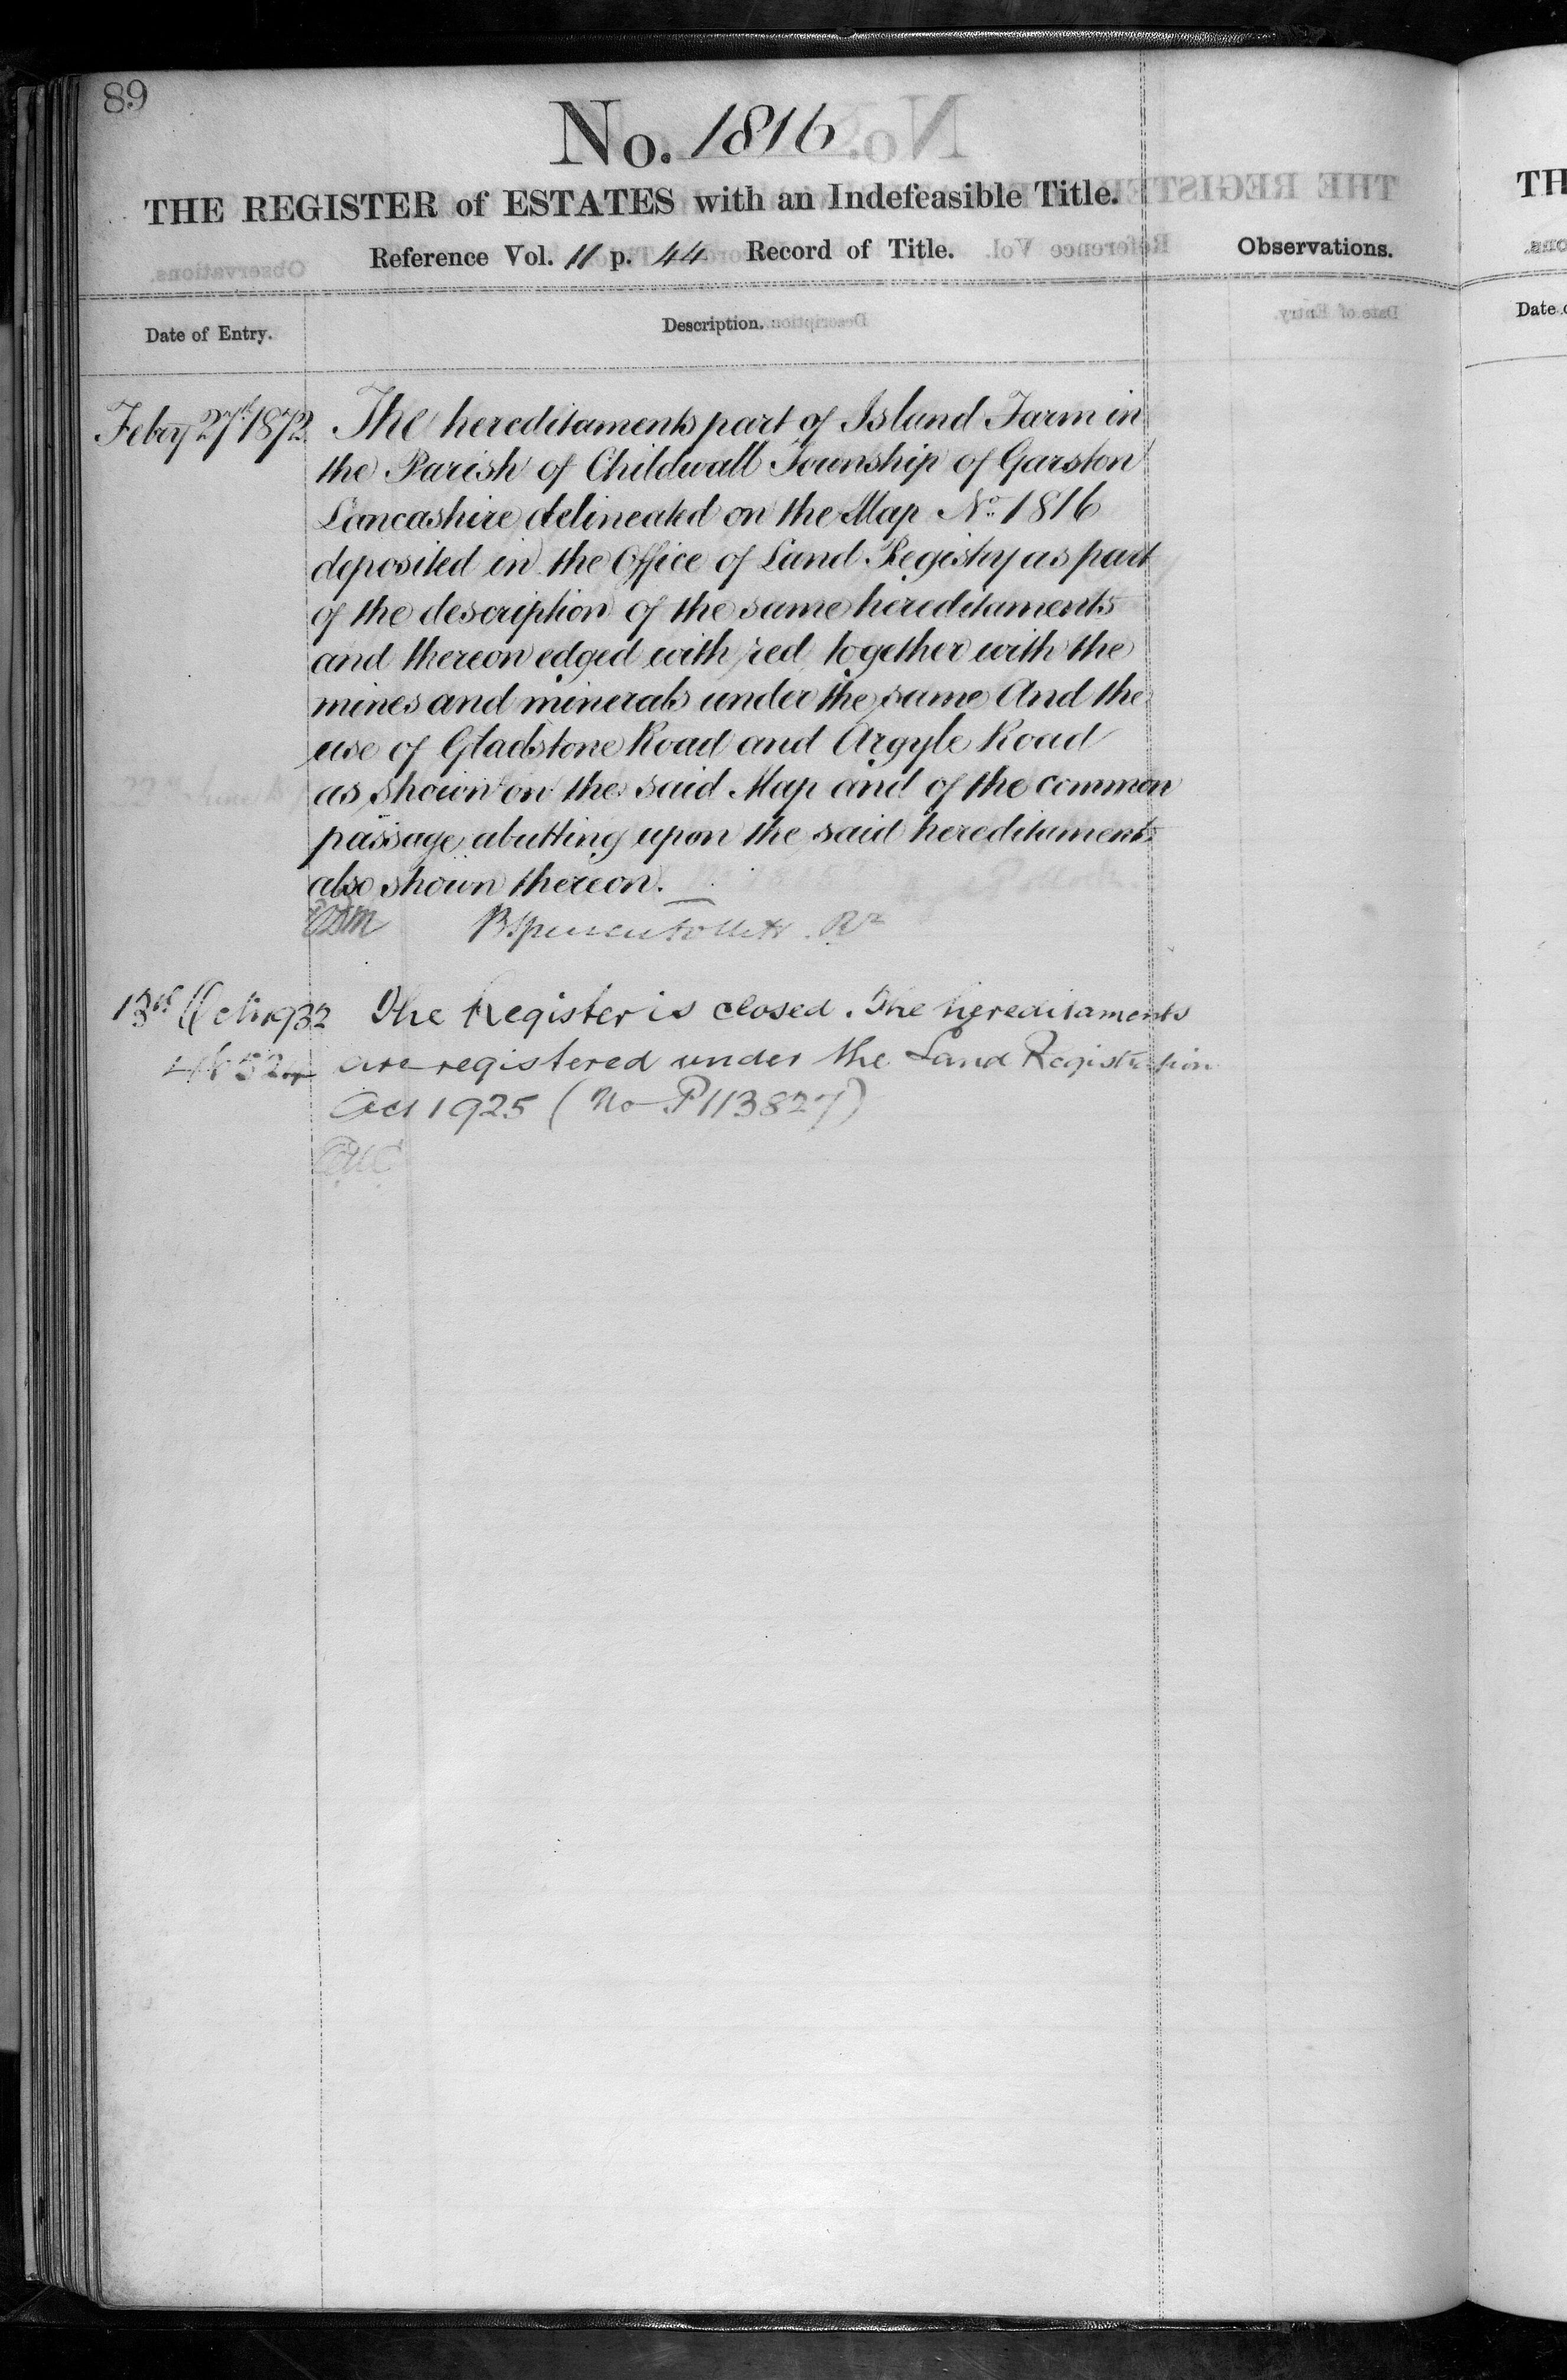 89
No. 1816
THE REGISTER of ESTATES with an Indefeasible Title.
Reference Vol. 11 p. 44 Record of Title.
Observations.
Date of Entry.
Description.
Feby 27th 1872
The hereditaments part of Island Farm in
the Parish of Childwall Township of Garston
Lancashire delineated on the Map No. 1816
deposited in the Office of Land Registry as part
of the description of the same hereditaments
and thereon edged with red together with the
mines and minerals under the same And the
use of Gladstone Road and Argyle Road
as shown on the said Map and of the common
passage abutting upon the said hereditaments
also shown thereon.
13th Oct 1932
The Register is closed. The hereditaments
are registered under the Land Registration
Act 1925 (No P113827)
TH
Date